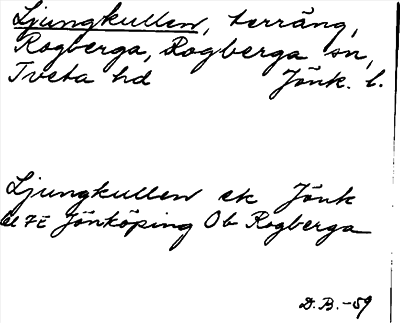 Ljungkullen, terräng,
Rogberga, Rogberga sn,
Tveta hd Jönk. l.
Ljungkullen ek Jönk
7E Jönköping Ob Rogberga
D.B.-59